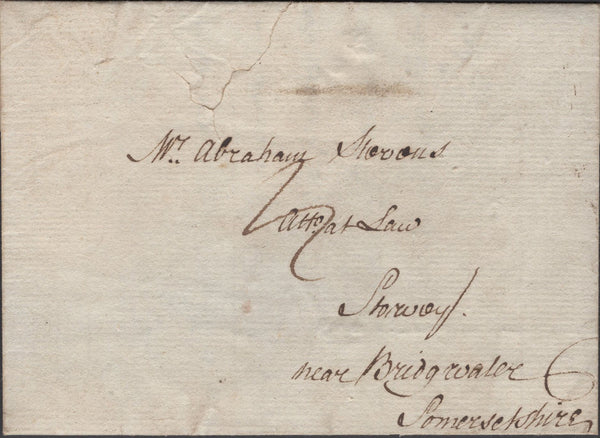 Mr. Abraham Stevens
Atto. at Law
Stowey.
near Bridgwater
Somersetshire